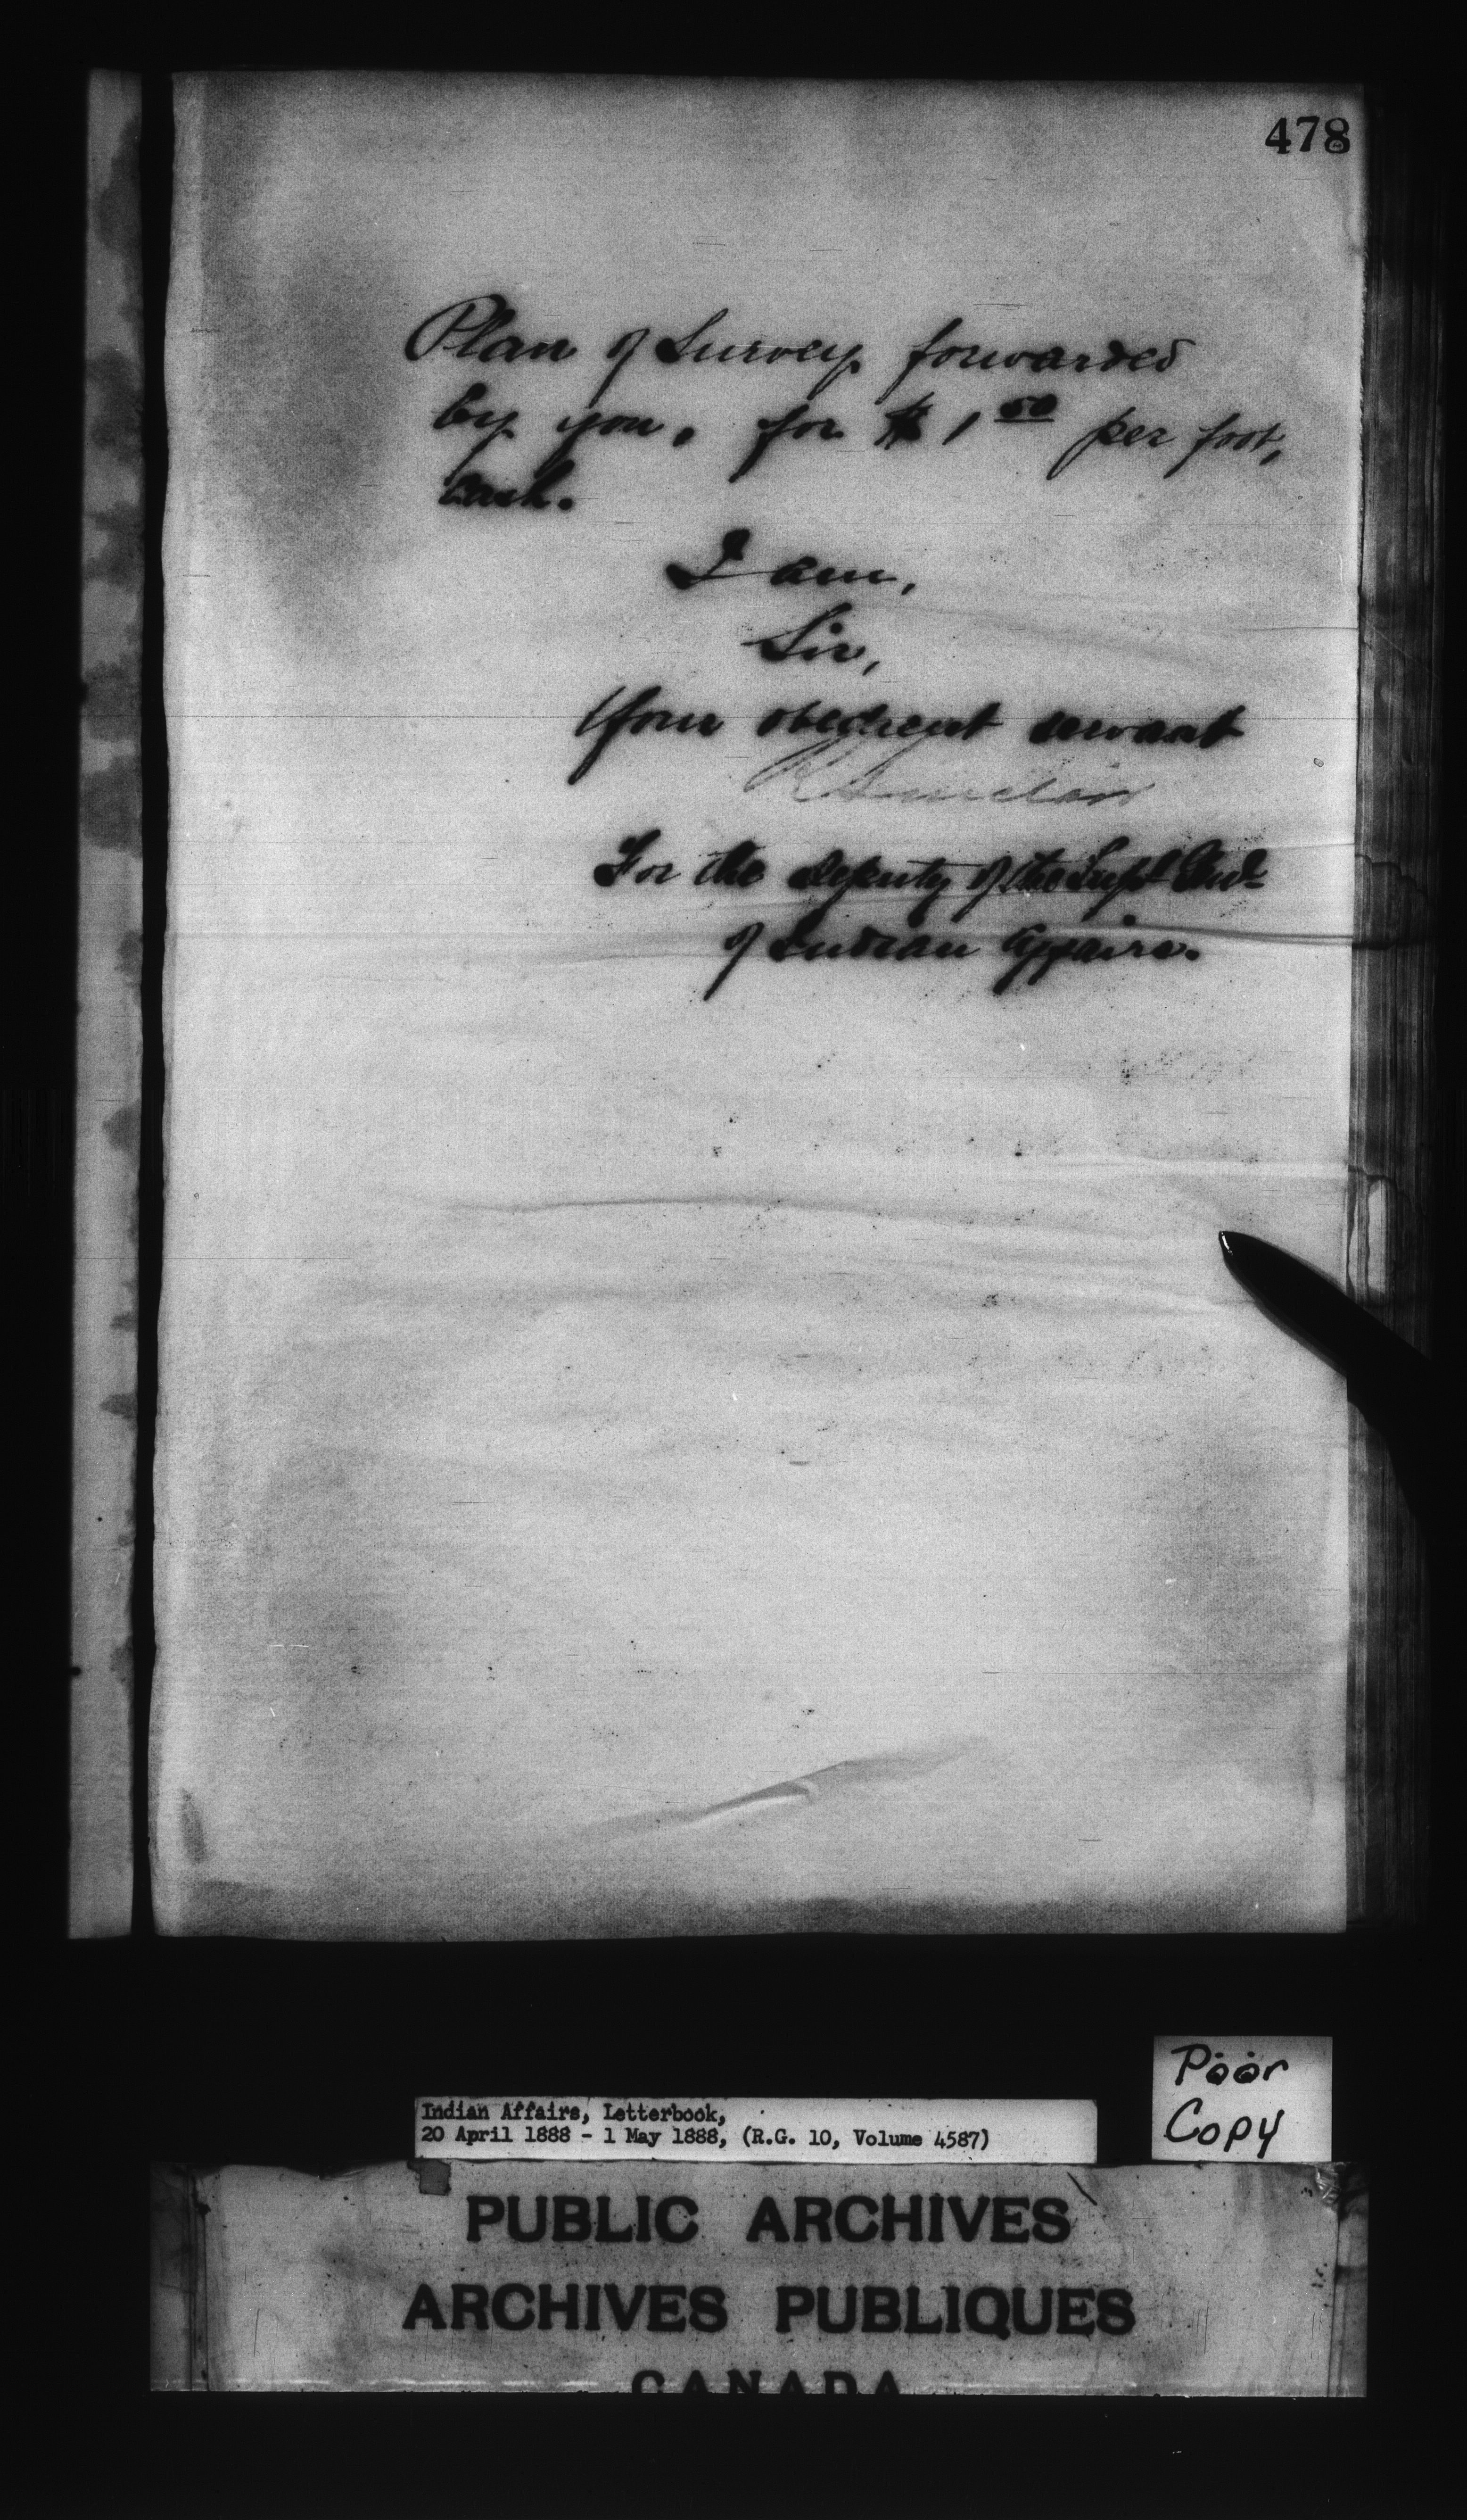 478
Plan of Survey forwarded
by you, for $1 50 per foot,
Cash.
I am,
Sir,
Your obedient servant
R Sinclair
For the deputy of the Supt Genl
of Indian Affairs.
Poor
Copy
Indian Affairs, Letterbook,
20 April 1888 - 1 May 1888, (R.G. 10, Volume 4587)
PUBLIC ARCHIVES
ARCHIVES PUBLIQUES
CANADA